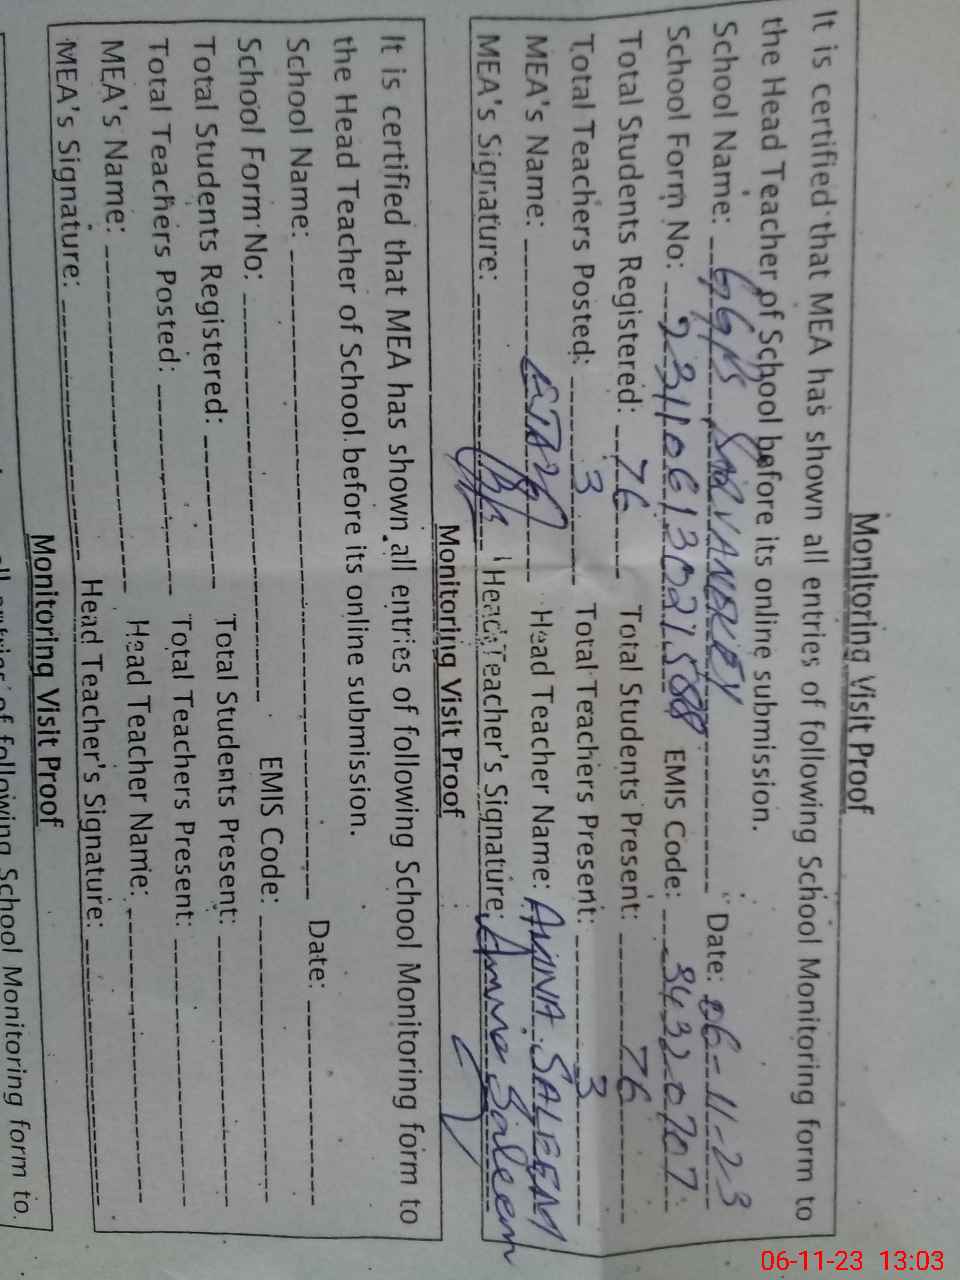 Monitoring Visit Proof
It is certified that MEA has shown all entries of following School Monitoring form to
the Head Teacher of School before its online submission.
School Name: GGPS Date: 06-11-23
School Form No: EMIS Code: 34320707
Total Students Registered: 76 Total Students Present: 76
Total Teachers Posted: 3 Total Teachers Present: 3
MEA's Name: Head Teacher Name: AMNA SALEEM
MEA's Signature: Head Teacher's Signature: Amna Saleem
Monitoring Visit Proof
It is certified that MEA has shown all entries of following School Monitoring form to
the Head Teacher of School before its online submission.
School Name: Date:
School Form No: EMIS Code:
Total Students Registered: Total Students Present:
Total Teachers Posted: Total Teachers Present:
MEA's Name: Head Teacher Name:
MEA's Signature: Head Teacher's Signature:
Monitoring Visit Proof
of following School Monitoring form to
06-11-23 13:03